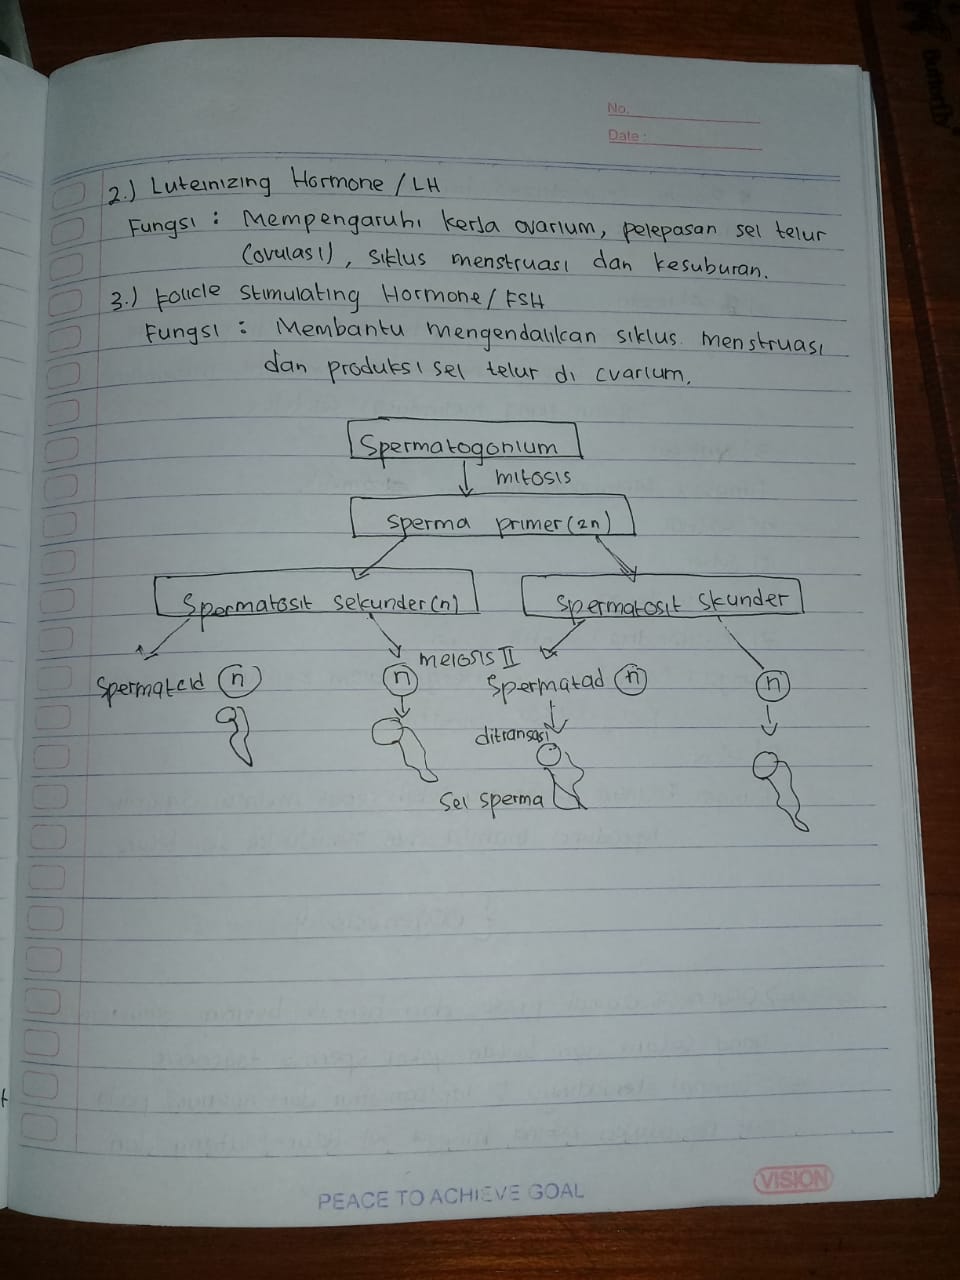 No.
Date:
2.) Luteinizing Hormone / LH
Fungsi : Mempengaruhi kerja ovarium, pelepasan sel telur
(ovulasi), siklus menstruasi dan kesuburan.
3.) Folicle Stimulating Hormone / FSH
Fungsi : Membantu mengendalikan siklus menstruasi
dan produksi sel telur di ovarium.
Spermatogonium
mitosis
sperma primer (2n)
Spermatosit sekunder (n)
Spermatosit skunder
meiosis II
Spermateid n
n
Spermatad n
n
ditransasi
Sel sperma
PEACE TO ACHIEVE GOAL
VISION